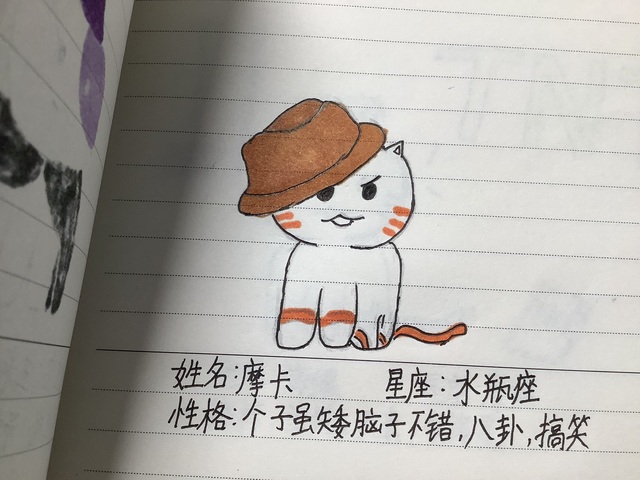 姓名:摩卡 星座:水瓶座
性格:个子虽矮脑子不错,八卦,搞笑